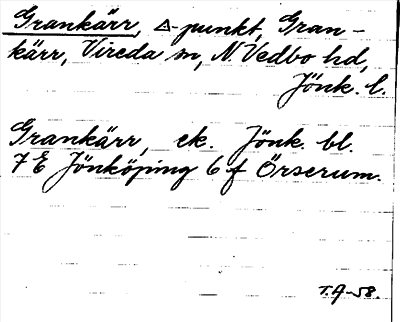 Grankärr, △-punkt, Gran-
kärr, Vireda sn, N. Vedbo hd,
Jönk. l.
Grankärr, ek. Jönk. bl.
7 E Jönköping 6 f Örserum.
T.A-58.